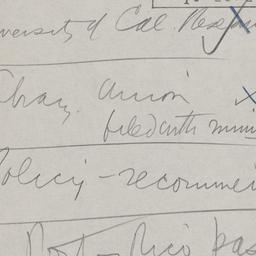 versity of Cal. Res
Union
filed with minu
Policy - recommen
Port - Rico pas